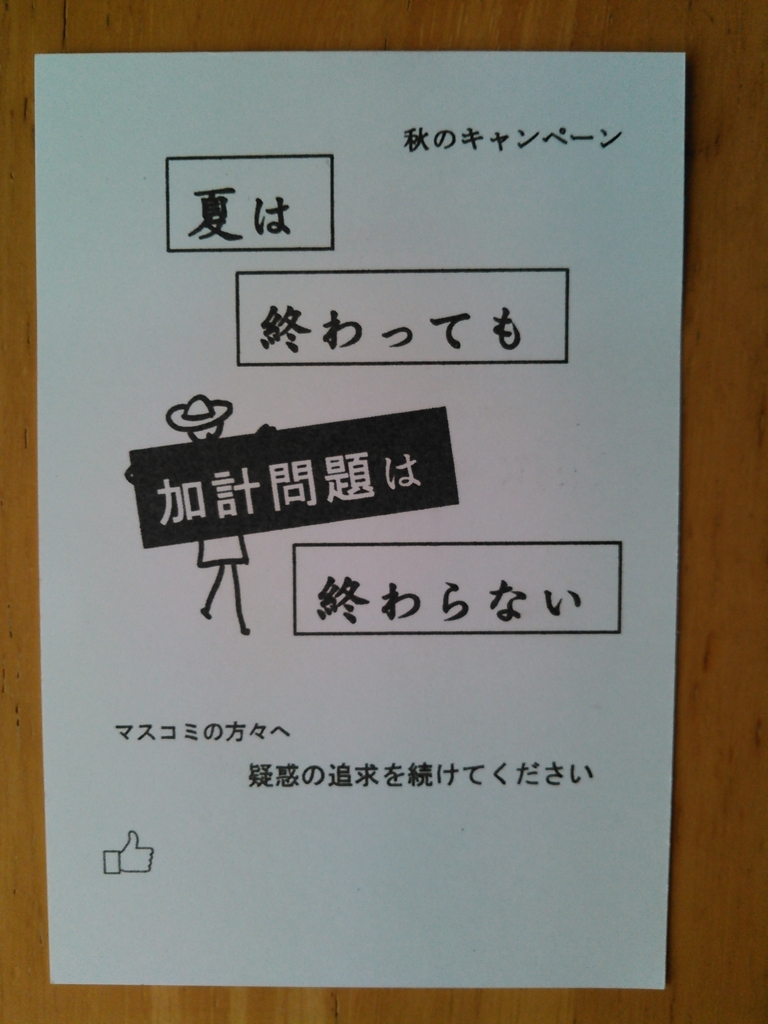 秋のキャンペーン
夏は
終わっても
加計問題は
終わらない
マスコミの方々へ
疑惑の追求を続けてください